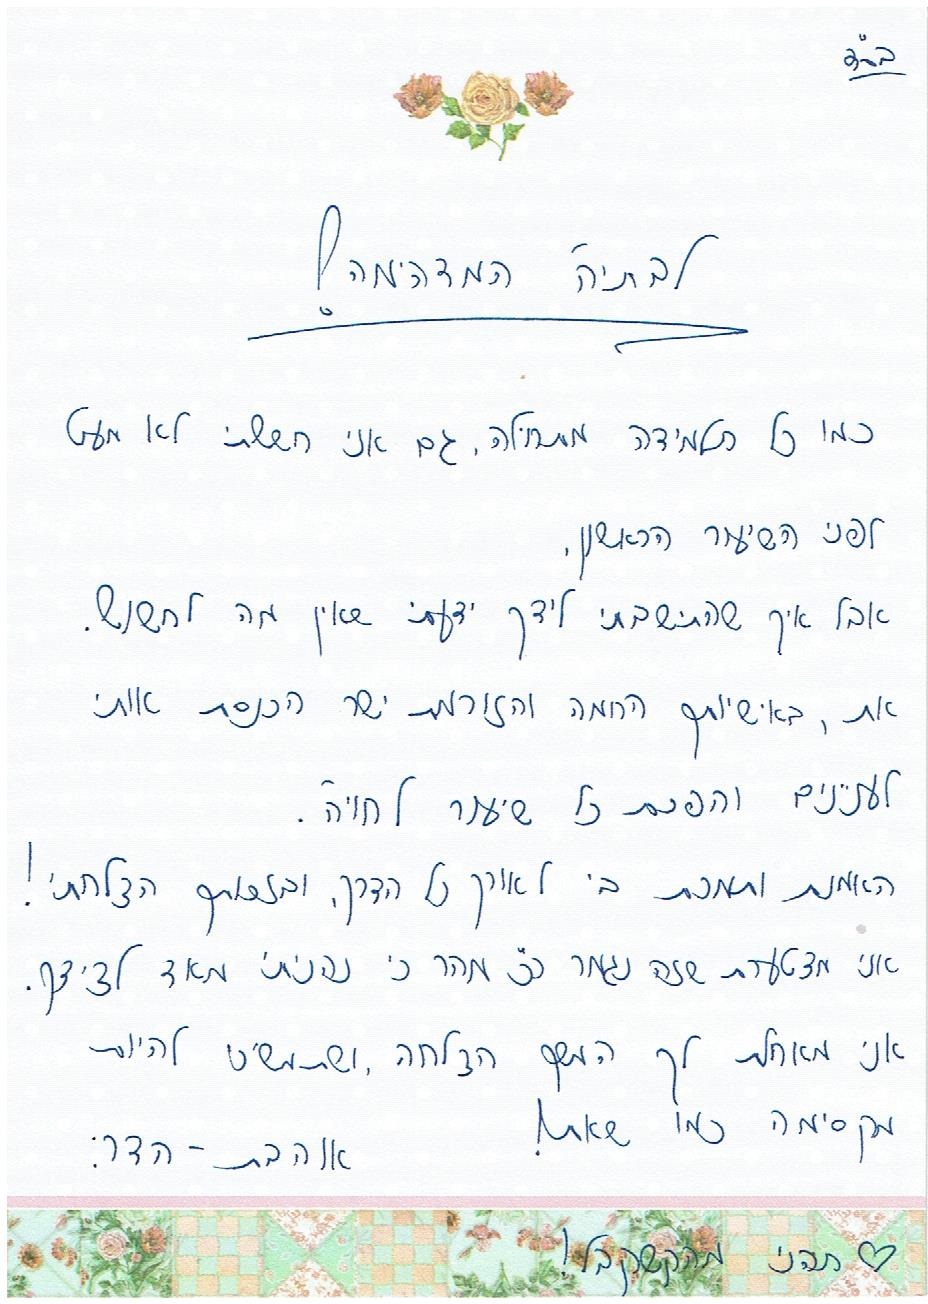 בס"ד
לבתיה המדהימה!
כמו כל תלמידה מתחילה, גם אני חששתי לא מעט
לפני השיעור הראשון,
אבל איך שהתישבתי לידך ידעתי שאין מה לחשוש.
את, באישיותך החמה והזורמת ישר הכנסת אותי
לענינים והפכת כל שיעור לחויה.
האמנת ותמכת בי לאורך כל הדרך, ובזכותך הצלחתי!
אני מצטערת שזה נגמר כ"כ מהר כי נהניתי מאד לצידך.
אני מאחלת לך המשך הצלחה, ושתמשיכי להיות
מקסימה כמו שאת!
אוהבת - הדר:
♡ תהני מהקשקבל!